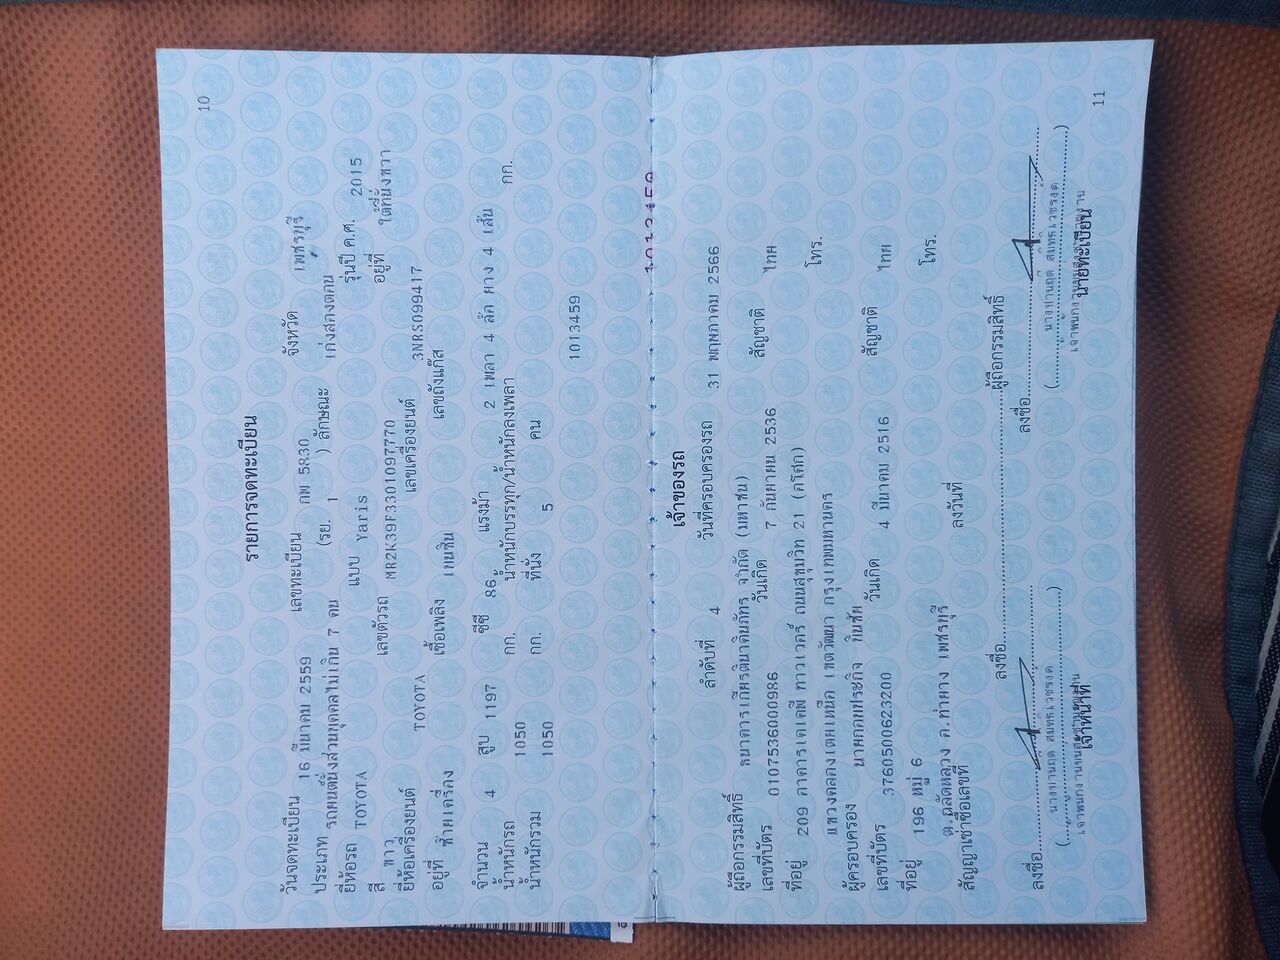 10
รายการจดทะเบียน
วันจดทะเบียน 16 มีนาคม 2559 เลขทะเบียน กพ 5830 จังหวัด เพชรบุรี
ประเภท รถยนต์นั่งส่วนบุคคลไม่เกิน 7 คน (รย. 1 ) ลักษณะ เก๋งสองตอน
ยี่ห้อรถ TOYOTA แบบ Yaris รุ่นปี ค.ศ. 2015
สี ขาว เลขตัวรถ MR2K39F3301097770 อยู่ที่ ใต้ที่นั่งขวา
ยี่ห้อเครื่องยนต์ TOYOTA เลขเครื่องยนต์ 3NRS099417
อยู่ที่ ท้ายเครื่อง เชื้อเพลิง เบนซิน เลขถังแก๊ส
จำนวน 4 สูบ 1197 ซีซี 86 แรงม้า 2 เพลา 4 ล้อ ยาง 4 เส้น
น้ำหนักรถ 1050 กก. น้ำหนักบรรทุก/น้ำหนักลงเพลา กก.
น้ำหนักรวม 1050 กก. ที่นั่ง 5 คน
1013459
1013459
เจ้าของรถ
ลำดับที่ 4 วันที่ครอบครองรถ 31 พฤษภาคม 2566
ผู้ถือกรรมสิทธิ์ ธนาคารเกียรตินาคินภัทร จำกัด (มหาชน)
เลขที่บัตร 0107536000986 วันเกิด 7 กันยายน 2536 สัญชาติ ไทย
ที่อยู่ 209 อาคารเคเคพี ทาวเวอร์ ถนนสุขุมวิท 21 (อโศก) โทร.
แขวงคลองเตยเหนือ เขตวัฒนา กรุงเทพมหานคร
ผู้ครอบครอง นายกอบประกิจ
เลขที่บัตร 3760500623200 วันเกิด 4 มีนาคม 2516 สัญชาติ ไทย
ที่อยู่ 196 หมู่ 6 โทร.
อ.ท่ายาง เพชรบุรี
สัญญาเช่าซื้อเลขที่ ลงวันที่
ลงชื่อ............ผู้ถือกรรมสิทธิ์
ลงชื่อ............ ลงชื่อ............
(............) (............)
เจ้าหน้าที่ นายทะเบียน
11